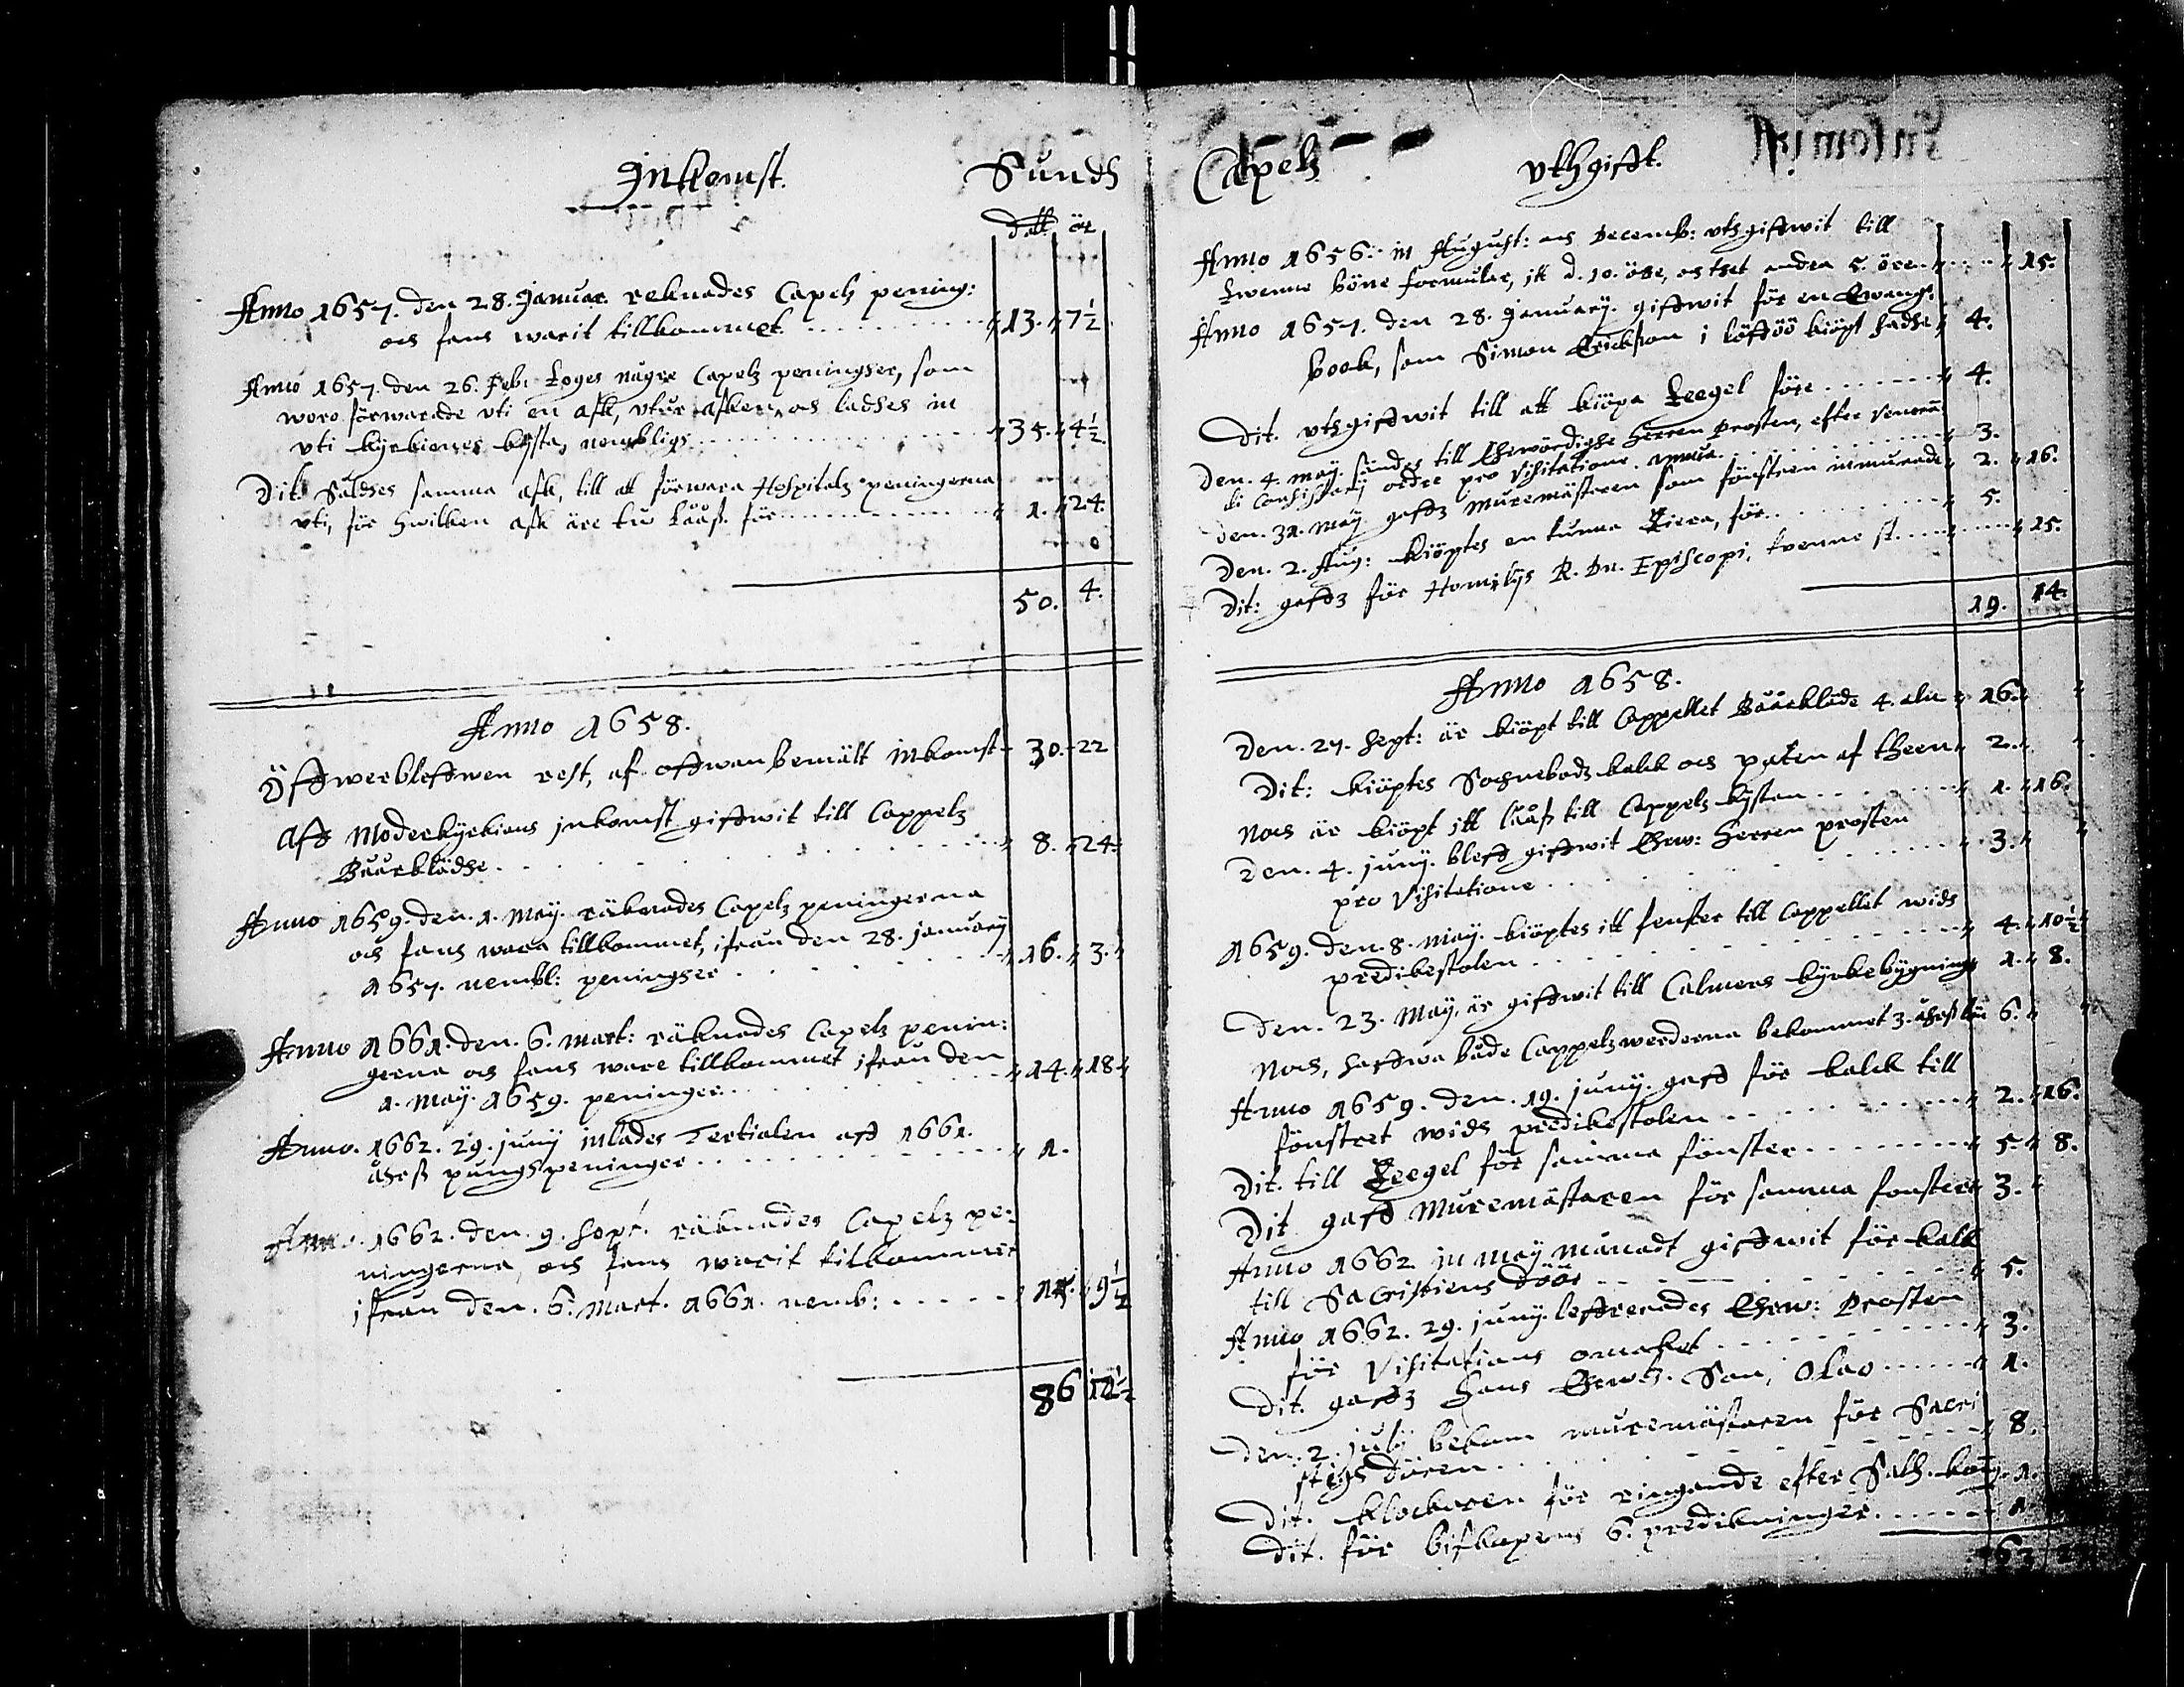 Inkomst. Sunds
dall: ör
Anno 1657. den 28. Januar. reknades Capelz pening:
och fans warit tillkommet ........ 13. 7½
Anno 1657. den 26. Feb: toges nagre Capelz peningher, som
woro förwarade vti en ask, vtur asken, och ladhes in
vti kyrkiones kysta, nembligh ........ 35. 4½
Dito Såldhes samma ask, till att förwara Hospitalz peningerna
vti, för hwilken ask äre tw låås. för ........ 1. 24.
50. 4.
Anno 1658.
Öfwerblefwen rest, af ofwanbemält inkomst 30. 22
Aff Moderkyrkians inkomst gifwit till Cappelz
Båårklädhe ........ 8. 24
Anno 1659. den. 1. May. räknades Capelz peningerna
och fans wara tillkommet, ifrån den 28. January
1657. nembl: peningher ........ 16. 3.
Anno 1661. den. 6. Mart: räknades Capelz penin:
gerna och fans ware tillkommet ifrån den
1. May. 1659. peninger ........ 14. 18
Anno. 1662. 29. juny inlades Tertialen aff 1661.
åhrß pungspeninger ........ 1.
Anno. 1662. den. 9. Sept. räknades Capelz pe:
ningerna, och fans warit tilkommit
ifrån den. 6. Mart. 1661. nemb: ..... 9½
86 12½
Capelz vthgifft.
Anno 1656. in August: och Decemb: vthgifwit till
twenne böne formular, itt d. 10. öre, och thet andra 5. öre 15.
Anno 1657. den 28. January. gifwit för en Ewang:
book, som Simon Erickson i löföö kiöpt hadhe 4.
Dit. vthgifwit till att kiöpa Teegel före ....... 4.
Den. 4. may. sändes till Ehrwördighe Herren Prosten, efter Veneran:
di Consistorij ordre pro Visitatione ........ 3.
den. 31. May gafz muremästaren som fönstren inmurade 2. 16.
Den. 2. Aug: kiöptes en tunna Tiera, för ........ 5.
Dit: gafz för Homilijs R. Dn. Episcopi, tvenne st ..... 25.
19. 14.
Anno 1658.
Den. 27. Sept: är kiöpt till Cappellet Båårkläde 4. aln 16.
Dit: kiöptes Sochnebodz kalck och paten af theen 2.
Noch är kiöpt itt låås till Cappelz kysten ........ 1. 16.
Den. 4. juny. bleff gifwit Ehrw: Herren prosten
pro Visitatione ........ 3.
1659. den. 8. May. kiöptes itt fenster till Cappellet widh
predikestolen ........ 4. 10½
Den. 23. May, är gifwit till Calmers kyrkebygning 1. 8.
Noch, hafwa både Cappelzwerderna bekommet 3. åhrß 6.
Anno 1659. den. 19. juny. gaff för kalck till
fönstret widh predikestolen ........ 2. 16.
Dit. till Teegel för samma fönster ........ 5. 8.
Dit gaff Muremästaren för samma fonster 3.
Anno 1662 in May månadt gifwit för kalk
till Sacristiens döör ........ 5.
Anno 1662. 29. juny. lefrerades Ehrw: Prosten
för Visitations omaket ........ 3.
Dit. gaffz hans Ehrwz. Son, Olao ...... 1.
den. 2. july bekom muremästaren för Sacri
stighs dören ........ 8.
Dit. klockaren för ringande efter Salh. kong. 1.
Dit. för biskopens 6. predikninger ...... 1.